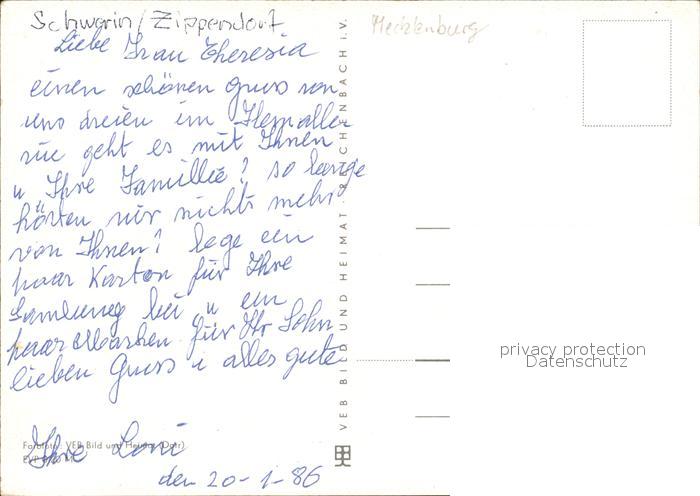 Schwerin/Zippendorf
Mecklenburg
Liebe Frau Theresia
einen schönen Gruss von
uns dreien im
wie geht es mit Ihnen
u Ihre Familie? so lange
hörten wir nichts mehr
von Ihnen? lege ein
paar Karton für Ihre
Samlung bei u ein
paar Marken für Ihr Sohn
lieben Gruss u alles gute
Ihre Loni
den 20-1-86
Farbfoto: VEB Bild und Heimat
VEB BILD UND HEIMAT · REICHENBACH I. V.
privacy protection
Datenschutz